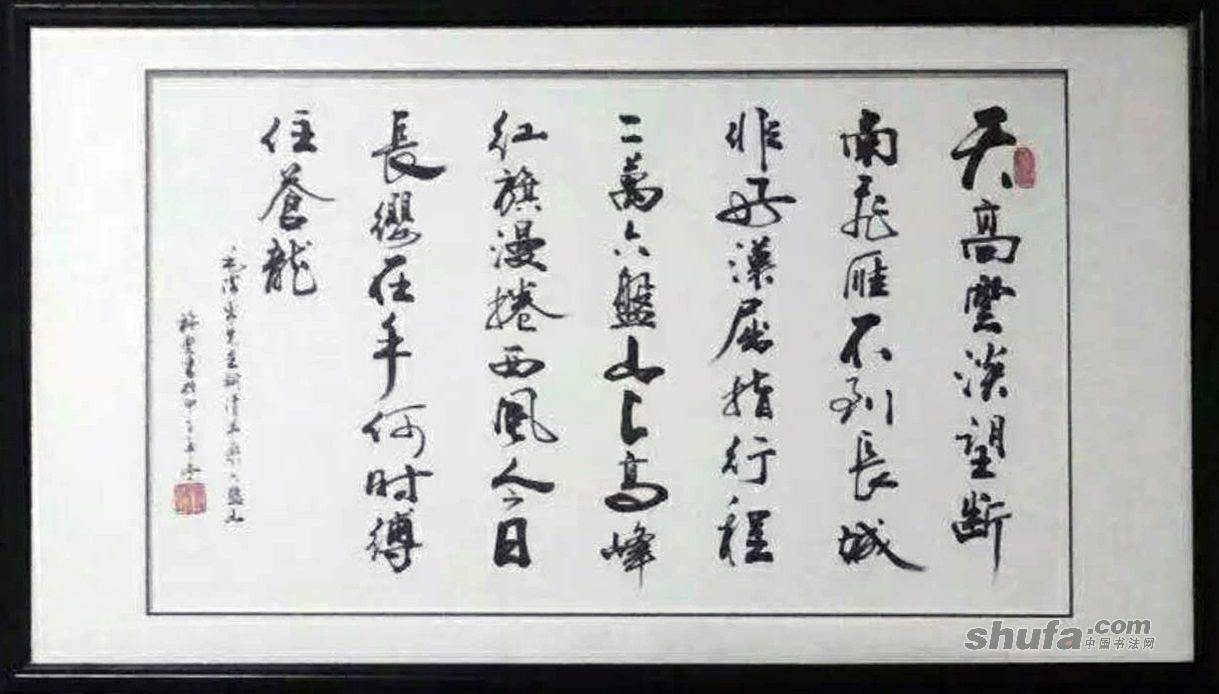 天高雲淡望断
南飛雁不到長城
非好漢屈指行程
二萬六盤山上高峰
红旗漫捲西風今日
長纓在手何时縛
住蒼龍
毛澤東先生詞清平樂六盤山
書於甲午年
shufa.com
中国书法网